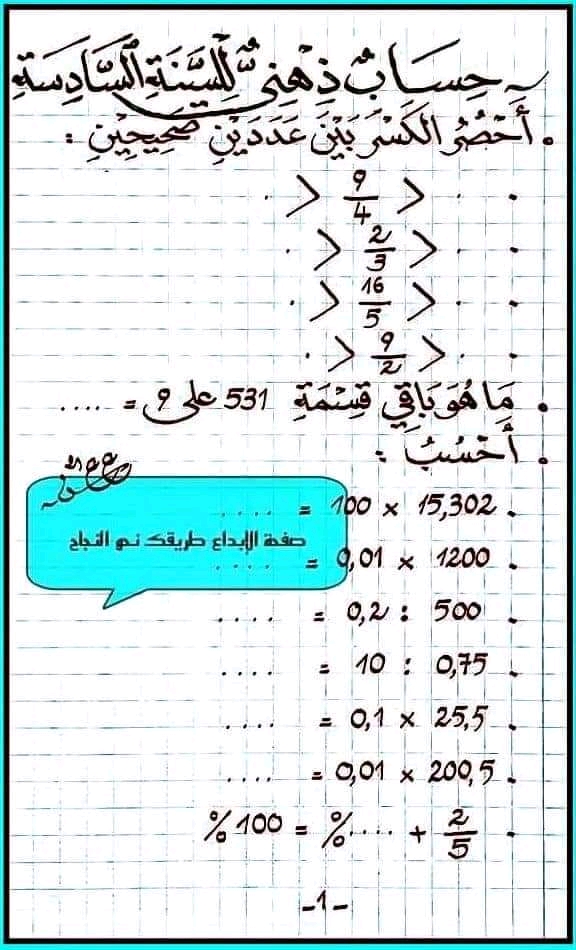 حِسَابٌ ذِهْنِيٌّ لِلسَّنَةِ السَّادِسَةِ
. أَحْصُرُ الكَسْرَ بَيْنَ عَدَدَيْنِ صَحِيحَيْنِ :
. . < 9/4 < .
. . < 2/3 < .
. . < 16/5 < .
. . < 9/2 < .
. مَا هُوَ بَاقِي قِسْمَةِ 531 على 9 = ....
. أَحْسُبُ :
. 15,302 × 100 = ....
صفحة الإبداع طريقك نحو النجاح
. 1200 × 0,01 = ....
. 500 : 0,2 = ....
. 0,75 : 10 = ....
. 25,5 × 0,1 = ....
. 200,5 × 0,01 = ....
. 2/5 + ....% = 100%
-1-